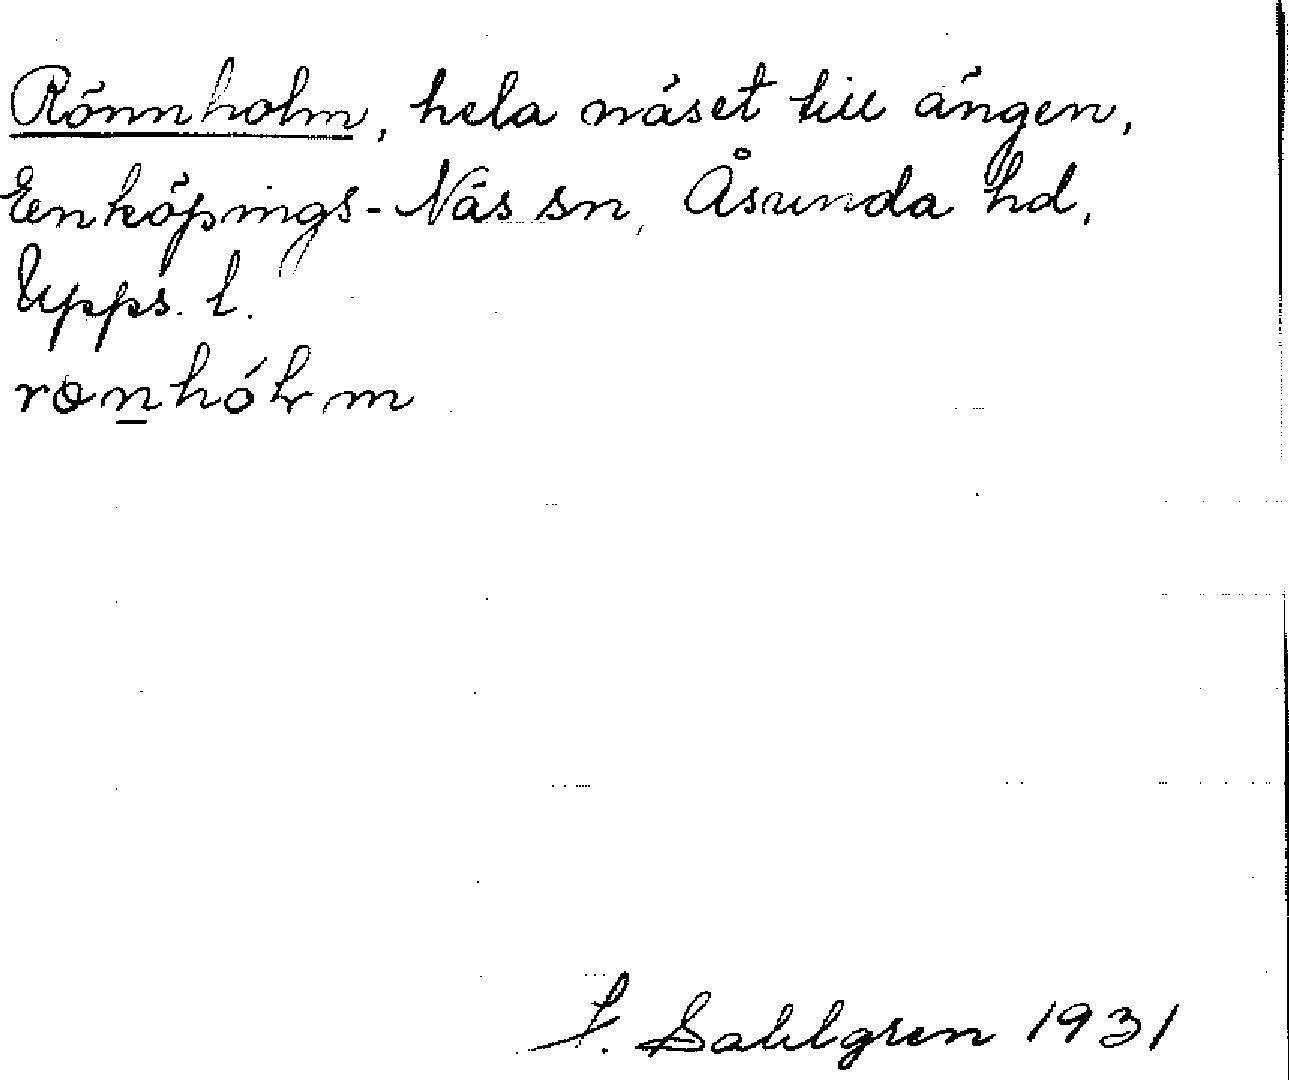 Rönnholm, hela näset till ängen,
Enköpings-Näs sn, Åsunda hd,
Upps. l.
F. Dahlgren 1931